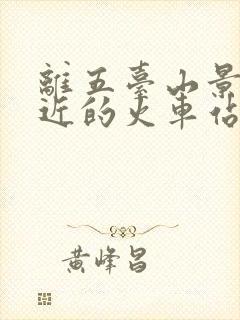 離五臺山景
近的火車佔
黃峰昌